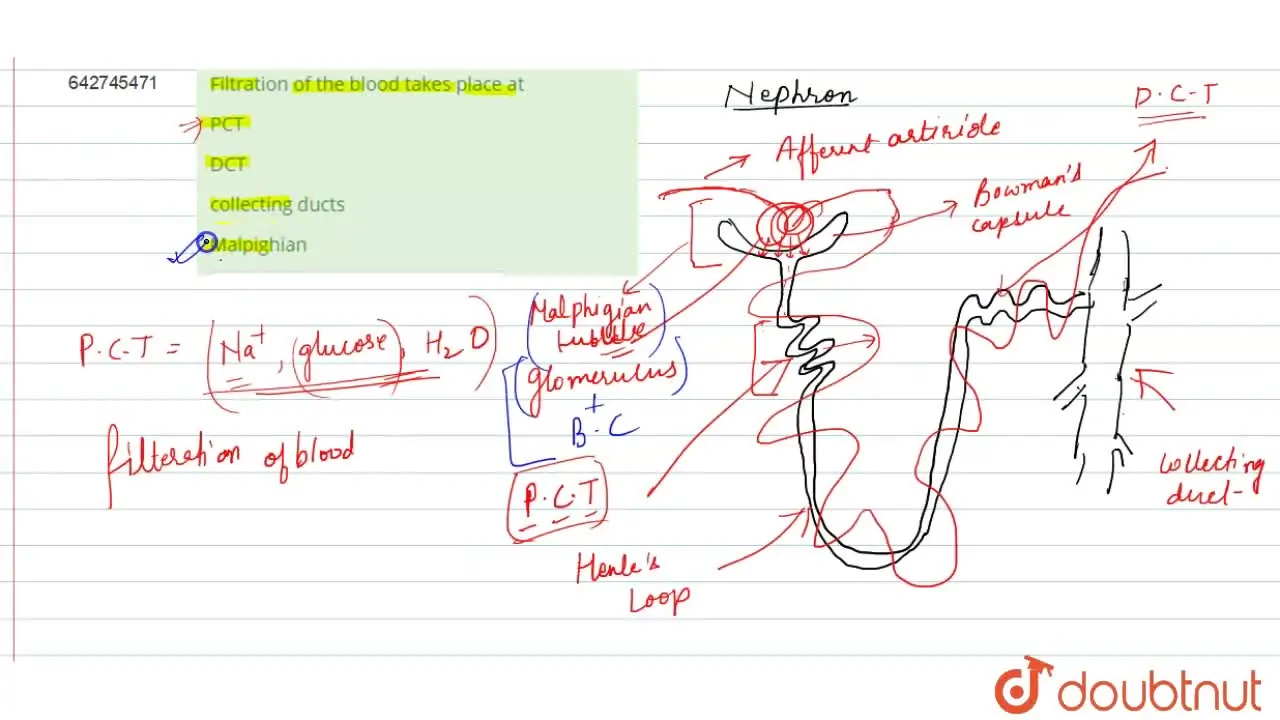 642745471
Filtration of the blood takes place at
PCT
DCT
collecting ducts
Malpighian
Nephron
D.C-T
Afferent artiriole
Bowman's
capsule
Malphigian
tubule
glomerulus
+
B.C
P.C.T = (Na+, (glucose), H2O)
filteration of blood
P.C.T
Henle's
Loop
Collecting
duct-
doubtnut